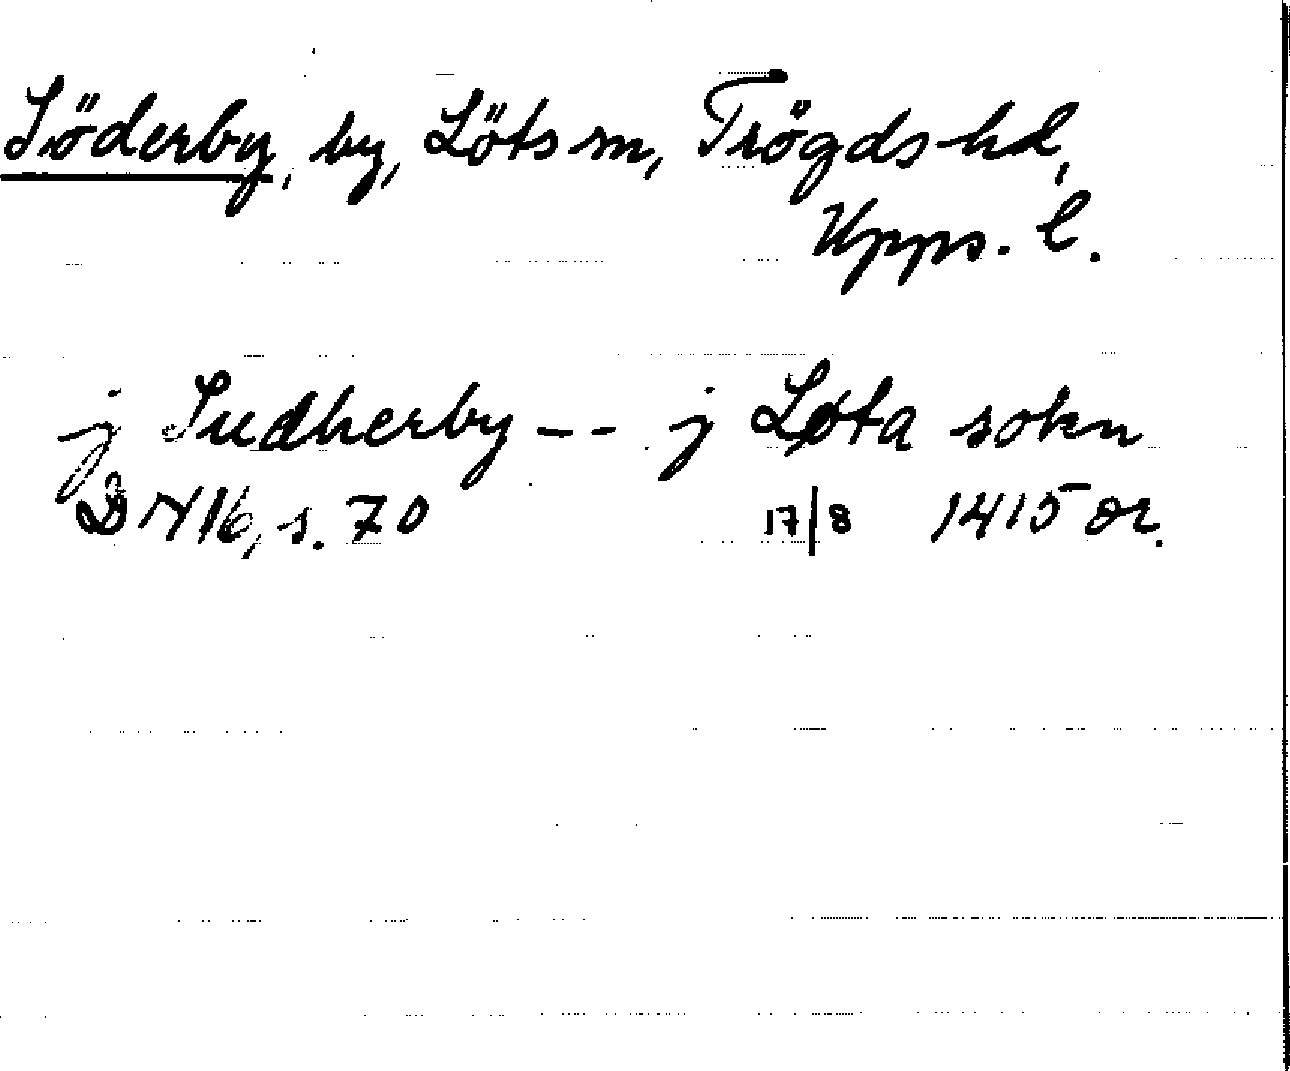 Söderby, by, Löts sn, Trögds hd,
Upps. l.
j Sudherby -- j Løta sokn
DN 16, s. 70 17/8 1415 or.